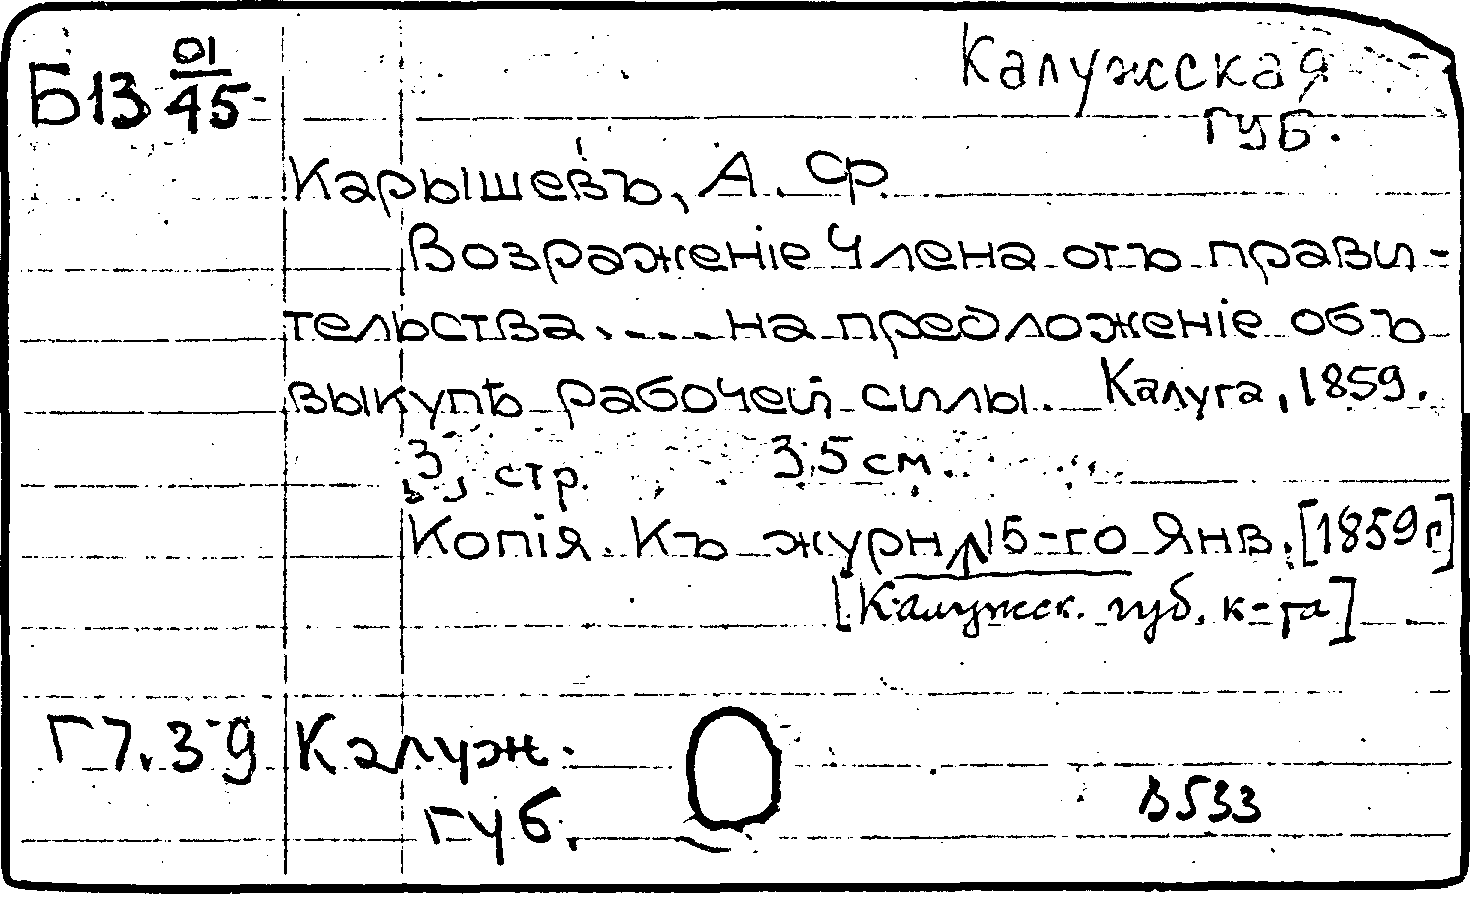 Б13 01/45
Калужская
губ.
Карышевъ, А. Ср.
Возраженіе Члена отъ прави-
тельства .... на предложеніе объ
выкупѣ рабочей силы. Калуга, 1859.
3, стр. 35 см.
Копія. Къ журн 15-го Янв. [1859 г]
[Калужск. губ. к-та]
Г7.39 Калуж.
губ.
В533